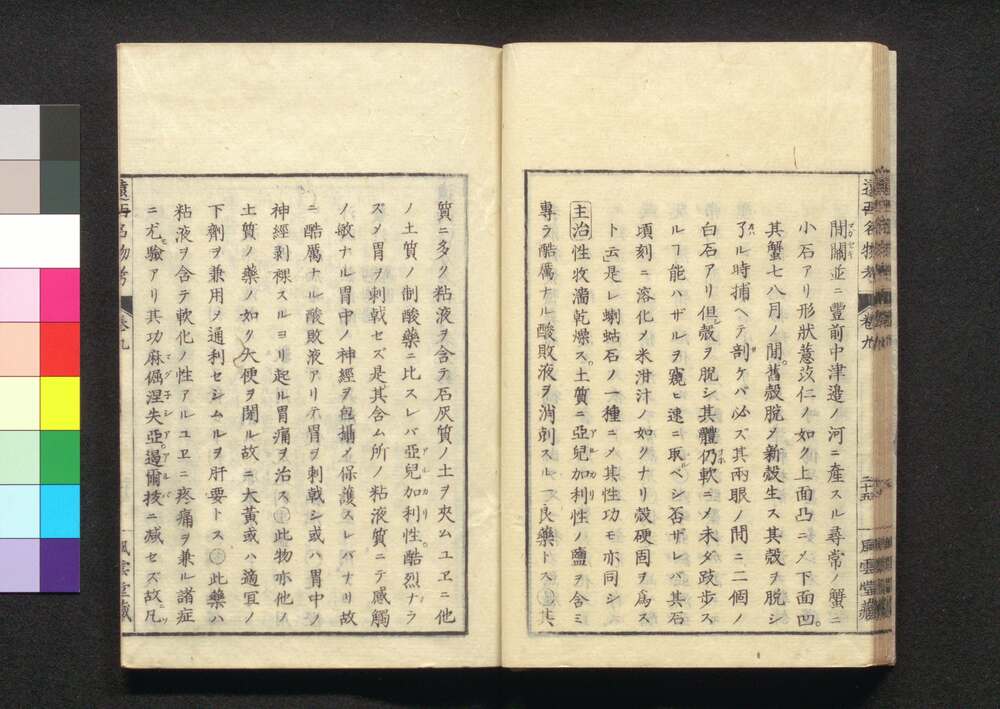 間關並ニ豐前中津邉ノ河ニ產スル尋常ノ蟹ニ
小石アリ形狀薏苡仁ノ如ク上面凸ニメ下面凹。
其蟹七八月ノ間。舊殻脫メ新殻生ス其殻ヲ脫シ
了ル時捕ヘテ剖ケバ必ズ其兩眼ノ間ニ二個ノ
白石アリ但殻ヲ脫シ其體仍軟ニメ未ダ跂歩ス
ルヿ能ハザルヲ窺ヒ速ニ取ベシ否ザレバ其石
頃刻ニ溶化メ米泔汁ノ如クナリ殻硬固ヲ爲ス
ト云是レ蝲蛄石ノ一種ニメ其性功モ亦同シ
主治 性收濇乾燥ス。土質ニ亞兒加利性ノ鹽ヲ含ミ
專ラ酷厲ナル酸敗液ヲ消刺スル一良藥トス 其
遠西名物考 卷九 二十五 風雲堂藏
質ニ多ク粘液ヲ含テ石灰質ノ土ヲ夾ムユヱニ他
ノ土質ノ制酸藥ニ比スレバ亞兒加利性。酷烈ナラ
ズメ胃ヲ刺戟セズ是其含ム所ノ粘液質ニテ感觸
ノ敏ナル胃中ノ神經ヲ包攝メ保護スレバナリ故
ニ酷厲ナル酸敗液アリテ胃ヲ刺戟シ或ハ胃中ノ
神經剥裸スルヨリ起ル胃痛ヲ治ス 此物亦他ノ
土質ノ藥ノ如ク大便ヲ閉ル故ニ大黃或ハ適宜ノ
下劑ヲ兼用メ通利セシムルヲ肝要トス 此藥ハ
粘液ヲ含テ軟化ノ性アルユヱニ疼痛ヲ兼ル諸症
ニ尤驗アリ其功麻倔涅失亞。曷爾拔ニ减セズ故凡
遠西名物考 卷九 風雲堂藏